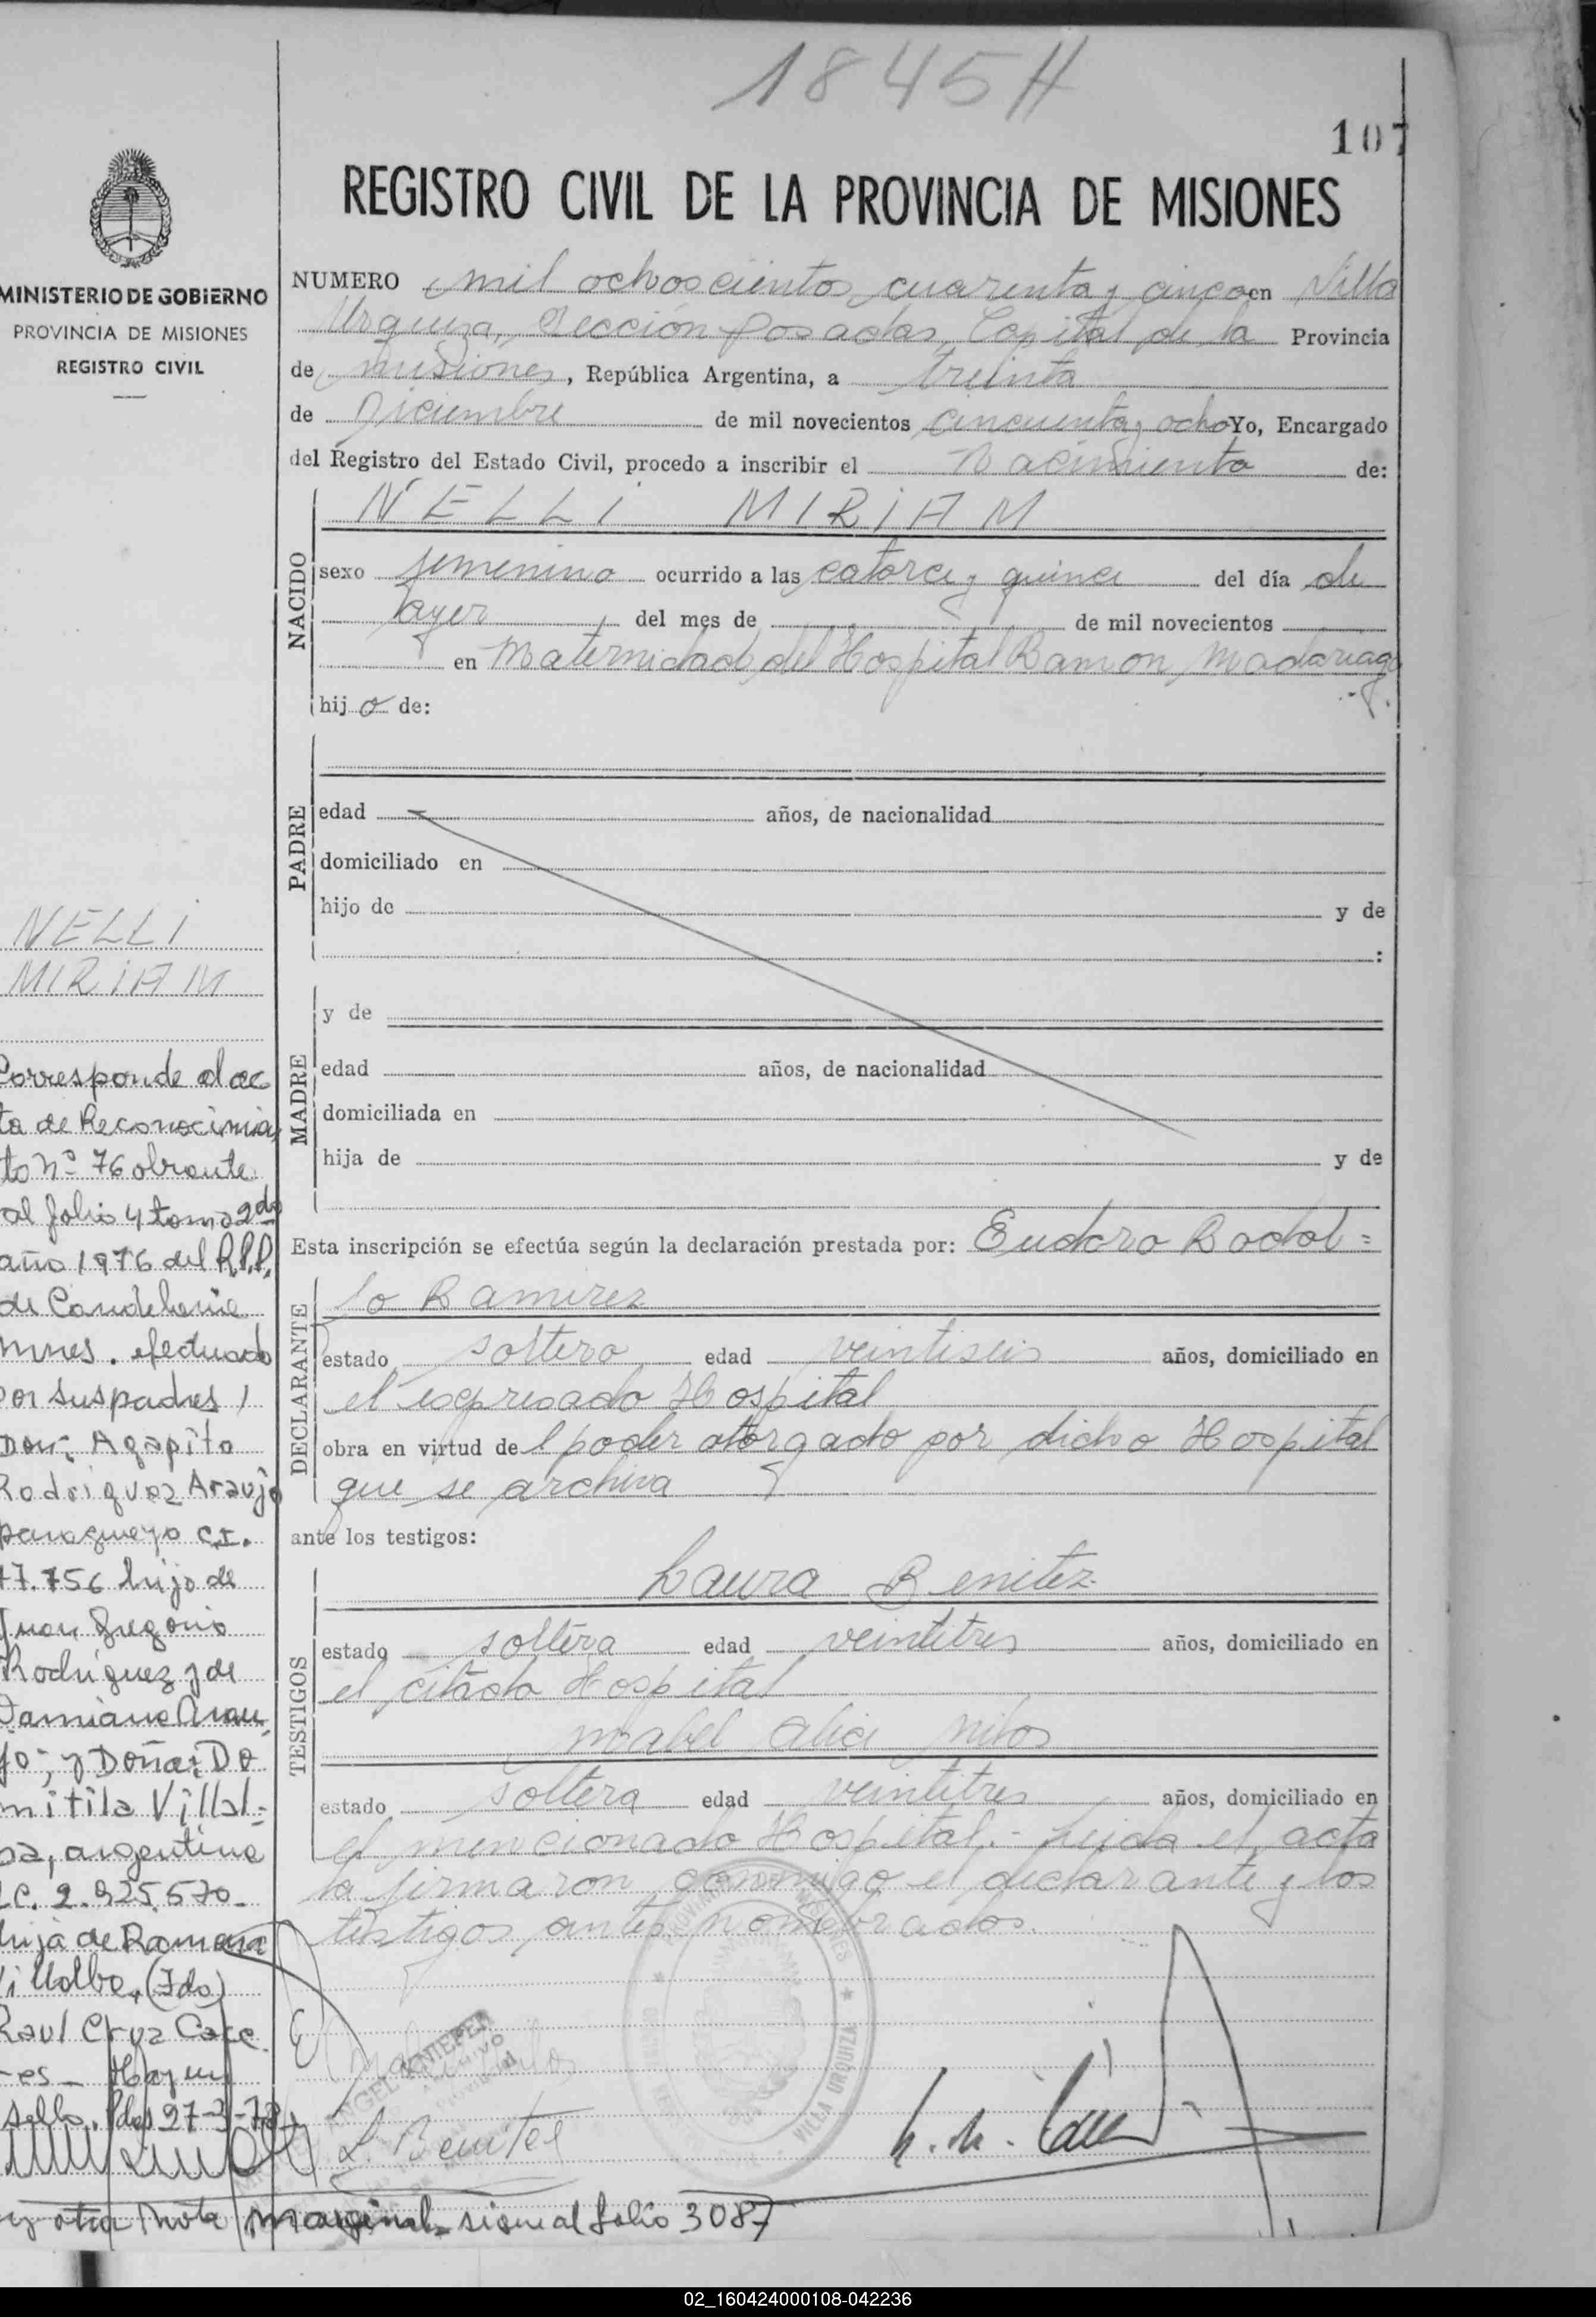 1845H
107
REGISTRO CIVIL DE LA PROVINCIA DE MISIONES
NUMERO mil ochoscientos cuarenta y cinco en Villa
Urquiza, Sección Posadas, Capital de la Provincia
de Misiones, República Argentina, a treinta
de Diciembre de mil novecientos cincuenta y ocho Yo, Encargado
del Registro del Estado Civil, procedo a inscribir el Nacimiento de:
NACIDO
NELLI MIRIAM
sexo femenino ocurrido a las catorce y quince del día de
ayer del mes de de mil novecientos
en Maternidad del Hospital Ramon Madariaga
hij a de:
PADRE
edad años, de nacionalidad
domiciliado en
hijo de y de
:
MADRE
y de
edad años, de nacionalidad
domiciliada en
hija de y de
Esta inscripción se efectúa según la declaración prestada por: Eudoro Rodol=
DECLARANTE
fo Ramirez
estado soltero edad veintiseis años, domiciliado en
el expresado Hospital
obra en virtud del poder otorgado por dicho Hospital
que se archiva
ante los testigos:
TESTIGOS
Laura Benitez
estado soltera edad veintitres años, domiciliado en
el citado Hospital
Mabel Alici Milos
estado soltera edad veintitres años, domiciliado en
el mencionado Hospital.- Leida el acta
la firmaron conmigo el declarante y los
testigos antes nombrados.
L. Benitez
VILLA URQUIZA
MINISTERIO DE GOBIERNO
PROVINCIA DE MISIONES
REGISTRO CIVIL
NELLI
MIRIAM
Corresponde al ac
ta de Reconocimien
to Nº 76 obrante
al folio 4 tomo 2do
año 1976 del R.P.P.
de Candelaria
mnes. efectuado
por sus padres
Don: Agapito
Rodriguez Araujo
paraguayo C.I.
17.756 hijo de
Juan Gregorio
Rodriguez y de
Damiana Arau
jo; y Doña: Do
mitila Villal=
ba, argentina
LC. 2.925.570-
hija de Ramona
Villalba, (Fdo)
Raul Cruz Cace
res - Hay un
sello. Pdas 27-3-78
y otra nota marginal sigue al folio 3087
02_160424000108-042236